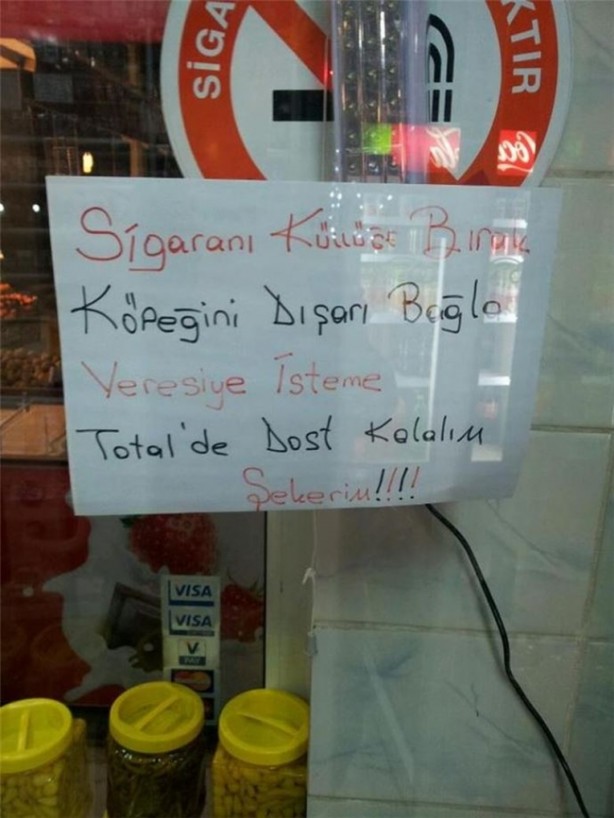 SİGA
KTIR
Coca
Sigaranı Küllüğe Bırak
Köpeğini Dışarı Bağla
Veresiye İsteme
Total'de Dost Kalalım
Şekerim!!!!
VISA
VISA
V
PAY